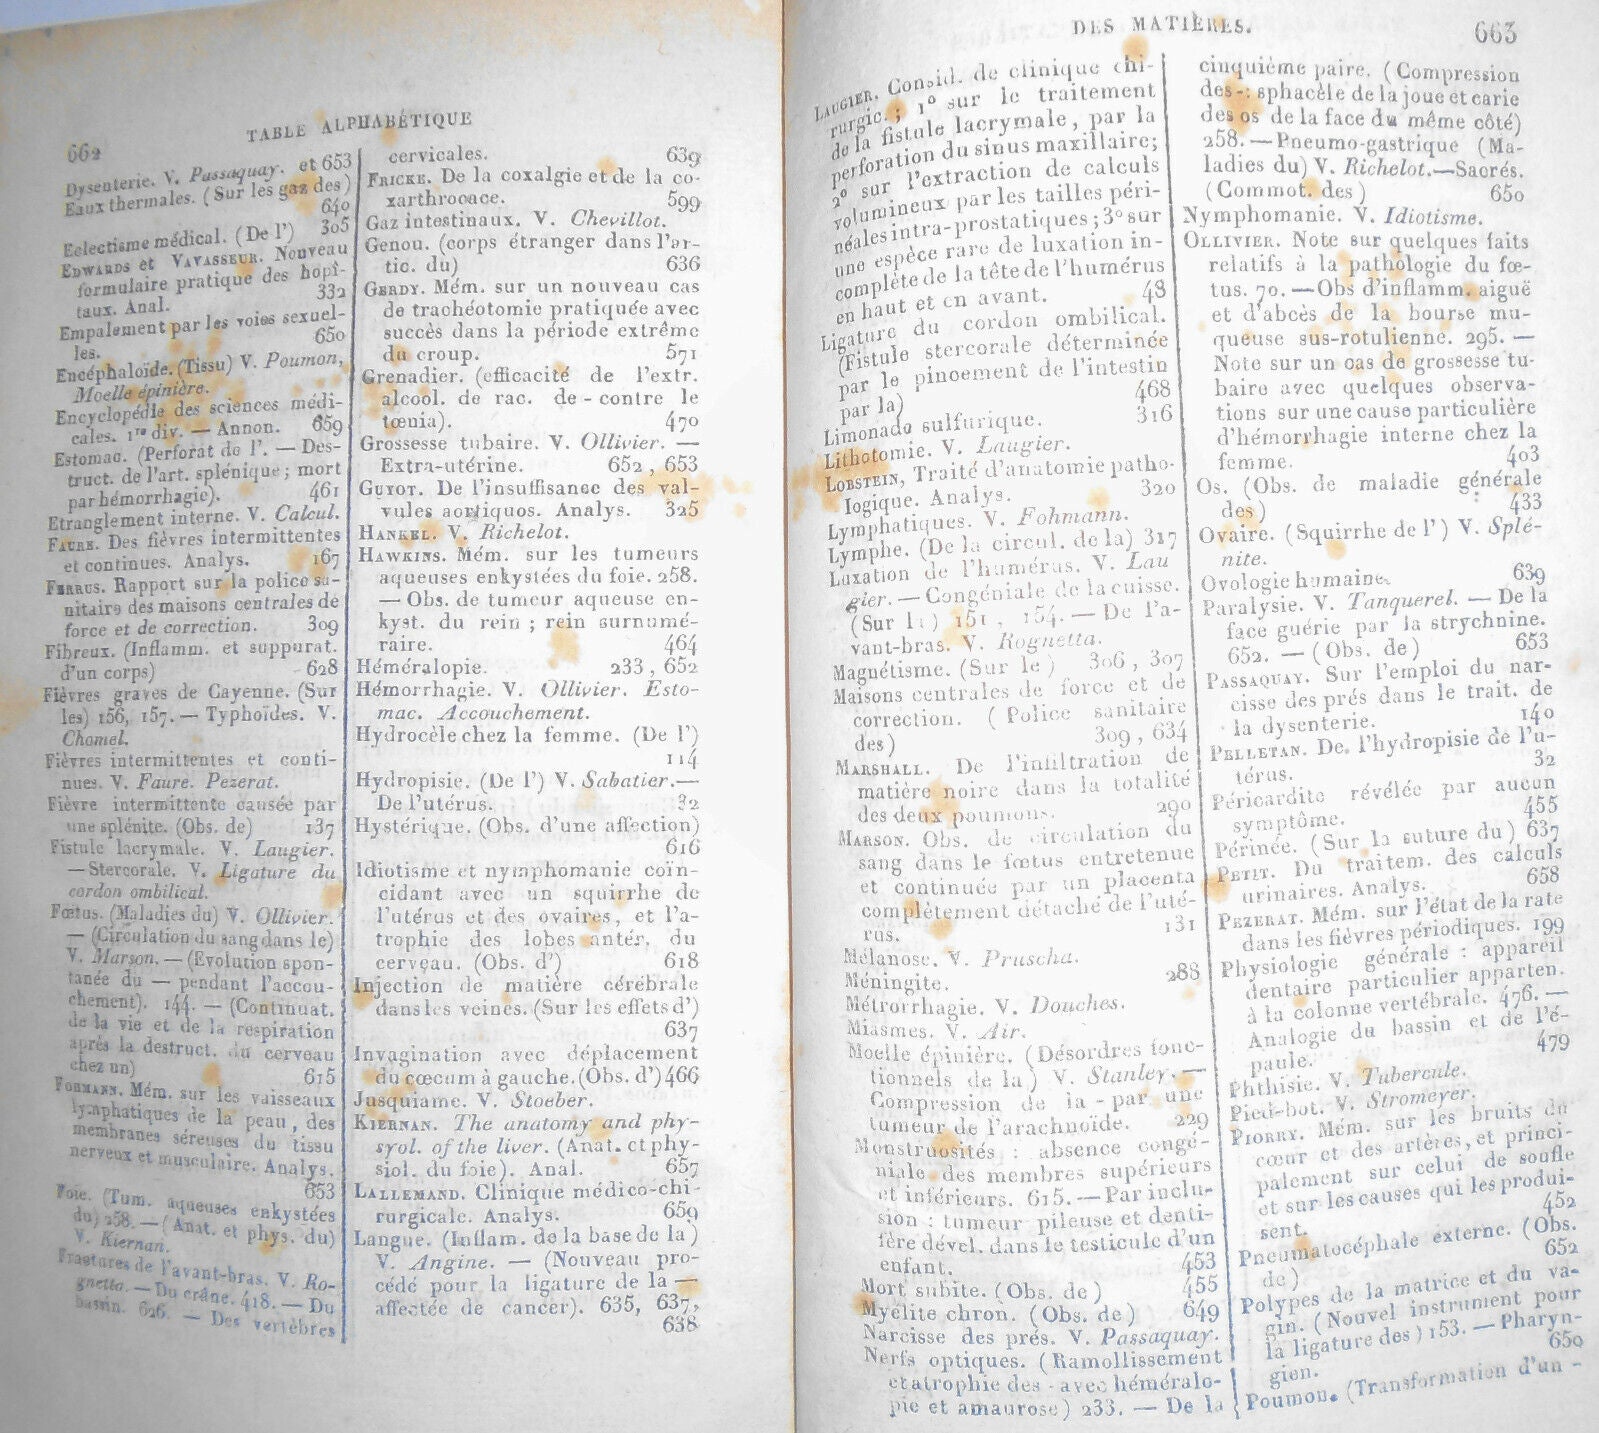 662
TABLE ALPHABÉTIQUE
Dysenterie. V. Passaquay. et 653
Eaux thermales. (Sur les gaz des)
640
Eclectisme médical. (De l') 305
EDWARDS et VAVASSEUR. Nouveau
formulaire pratique des hopî-
taux. Anal. 332
Empalement par les voies sexuel-
les. 650
Encéphaloïde. (Tissu) V. Poumon,
Moelle épinière.
Encyclopédie des sciences médi-
cales. 1re div. — Annon. 659
Estomac. (Perforat de l'. — Des-
truct. de l'art. splénique ; mort
par hémorrhagie). 461
Etranglement interne. V. Calcul.
FAURE. Des fièvres intermittentes
et continues. Analys. 167
FERRUS. Rapport sur la police sa-
nitaire des maisons centrales de
force et de correction. 309
Fibreux. (Inflamm. et suppurat.
d'un corps) 628
Fièvres graves de Cayenne. (Sur
les) 156, 157. — Typhoïdes. V.
Chomel.
Fièvres intermittentes et conti-
nues. V. Faure. Pezerat.
Fièvre intermittente causée par
une splénite. (Obs. de) 137
Fistule lacrymale. V. Laugier.
— Stercorale. V. Ligature du
cordon ombilical.
Fœtus. (Maladies du) V. Ollivier.
— (Circulation du sang dans le)
V. Marson. — (Evolution spon-
tanée du — pendant l'accou-
chement). 144. — (Continuat.
de la vie et de la respiration
après la destruct. du cerveau
chez un) 615
FOHMANN. Mém. sur les vaisseaux
lymphatiques de la peau, des
membranes séreuses du tissu
nerveux et musculaire. Analys.
653
Foie. (Tum. aqueuses enkystées
du) 258. — (Anat. et phys. du)
V. Kiernan.
Fractures de l'avant-bras. V. Ro-
gnetta. — Du crâne. 418. — Du
bassin. 626. — Des vertèbres
cervicales. 639
FRICKE. De la coxalgie et de la co-
xarthrocace. 599
Gaz intestinaux. V. Chevillot.
Genou. (corps étranger dans l'ar-
tic. du) 636
GERDY. Mém. sur un nouveau cas
de trachéotomie pratiquée avec
succès dans la période extrême
du croup. 571
Grenadier. (efficacité de l'extr.
alcool. de rac. de - contre le
tœnia). 470
Grossesse tubaire. V. Ollivier. —
Extra-utérine. 652, 653
GUYOT. De l'insuffisance des val-
vules aortiques. Analys. 325
HANKEL. V. Richelot.
HAWKINS. Mém. sur les tumeurs
aqueuses enkystées du foie. 258.
— Obs. de tumeur aqueuse en-
kyst. du rein ; rein surnumé-
raire. 464
Héméralopie. 233, 652
Hémorrhagie. V. Ollivier. Esto-
mac. Accouchement.
Hydrocèle chez la femme. (De l')
114
Hydropisie. (De l') V. Sabatier.—
De l'utérus. 32
Hystérique. (Obs. d'une affection)
616
Idiotisme et nymphomanie coïn-
cidant avec un squirrhe de
l'utérus et des ovaires, et l'a-
trophie des lobes antér. du
cerveau. (Obs. d') 618
Injection de matière cérébrale
dans les veines. (Sur les effets d')
637
Invagination avec déplacement
du cœcum à gauche. (Obs. d') 466
Jusquiame. V. Stoeber.
KIERNAN. The anatomy and phy-
syol. of the liver. (Anat. et phy-
siol. du foie). Anal. 657
LALLEMAND. Clinique médico-chi-
rurgicale. Analys. 659
Langue. (Inflam. de la base de la)
V. Angine. — (Nouveau pro-
cédé pour la ligature de la —
affectée de cancer). 635, 637,
638
DES MATIÈRES.
663
LAUGIER. Consid. de clinique chi-
rurgic. ; 1º sur le traitement
de la fistule lacrymale, par la
perforation du sinus maxillaire;
2º sur l'extraction de calculs
volumineux par les tailles péri-
néales intra-prostatiques ; 3º sur
une espèce rare de luxation in-
complète de la tête de l'humérus
en haut et en avant. 48
Ligature du cordon ombilical.
(Fistule stercorale déterminée
par le pincement de l'intestin
par la) 468
Limonade sulfurique. 316
Lithotomie. V. Laugier.
LOBSTEIN, Traité d'anatomie patho-
logique. Analys. 320
Lymphatiques. V. Fohmann.
Lymphe. (De la circul. de la) 317
Luxation de l'humérus. V. Lau
gier. — Congéniale de la cuisse.
(Sur la) 151, 154. — De l'a-
vant-bras. V. Rognetta.
Magnétisme. (Sur le) 306, 307
Maisons centrales de force et de
correction. (Police sanitaire
des) 309, 634
MARSHALL. De l'infiltration de
matière noire dans la totalité
des deux poumons. 290
MARSON. Obs. de circulation du
sang dans le fœtus entretenue
et continuée par un placenta
complètement détaché de l'uté-
rus. 131
Mélanose. V. Pruscha.
Méningite. 288
Métrorrhagie. V. Douches.
Miasmes. V. Air.
Moelle épinière. (Désordres fonc-
tionnels de la) V. Stanley. —
Compression de la - par une
tumeur de l'arachnoïde. 229
Monstruosités : absence congé-
niale des membres supérieurs
et inférieurs. 615. — Par inclu-
sion : tumeur pileuse et denti-
fère dével. dans le testicule d'un
enfant. 453
Mort subite. (Obs. de) 455
Myélite chron. (Obs. de) 649
Narcisse des prés. V. Passaquay.
Nerfs optiques. (Ramollissement
et atrophie des - avec héméralo-
pie et amaurose) 233. — De la
cinquième paire. (Compression
des - : sphacèle de la joue et carie
des os de la face du même côté)
258. — Pneumo-gastrique (Ma-
ladies du) V. Richelot.— Sacrés.
(Commot. des) 650
Nymphomanie. V. Idiotisme.
OLLIVIER. Note sur quelques faits
relatifs à la pathologie du fœ-
tus. 70. — Obs d'inflamm. aiguë
et d'abcès de la bourse mu-
queuse sus-rotulienne. 295. —
Note sur un cas de grossesse tu-
baire avec quelques observa-
tions sur une cause particulière
d'hémorrhagie interne chez la
femme. 403
Os. (Obs. de maladie générale
des) 433
Ovaire. (Squirrhe de l') V. Splé-
nite.
Ovologie humaine. 639
Paralysie. V. Tanquerel. — De la
face guérie par la strychnine.
652. — (Obs. de) 653
PASSAQUAY. Sur l'emploi du nar-
cisse des prés dans le trait. de
la dysenterie. 140
PELLETAN. De l'hydropisie de l'u-
térus. 32
Péricardite révélée par aucun
symptôme. 455
Périnée. (Sur la suture du) 637
PETIT. Du traitem. des calculs
urinaires. Analys. 658
PEZERAT. Mém. sur l'état de la rate
dans les fièvres périodiques. 199
Physiologie générale : appareil
dentaire particulier apparten.
à la colonne vertébrale. 476. —
Analogie du bassin et de l'é-
paule. 479
Phthisie. V. Tubercule.
Pied-bot. V. Stromeyer.
PIORRY. Mém. sur les bruits du
cœur et des artères, et princi-
palement sur celui de soufle
et sur les causes qui les produi-
sent. 452
Pneumatocéphale externe. (Obs.
de) 652
Polypes de la matrice et du va-
gin. (Nouvel instrument pour
la ligature des) 153. — Pharyn-
gien. 650
Poumon. (Transformation d'un -